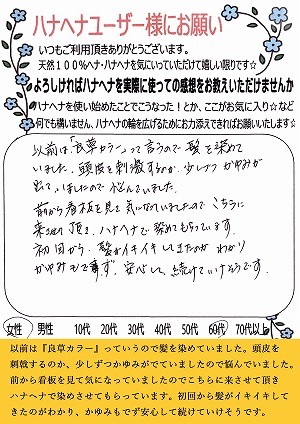 ハナヘナユーザー様にお願い
いつもご利用頂きありがとうございます。
天然100%ヘナ・ハナヘナを気にいっていただけて嬉しい限りです☆
よろしければハナヘナを実際に使っての感想をお教えいただけませんか
ハナヘナを使い始めたことでこうなった!とか、ここがお気に入り☆など
何でも構いません、ハナヘナの輪を広げるためにお力添えできればお願いいたします☆
以前は「良草カラー」って言うので髪を染めて
いました。頭皮を刺激するのか、少しずつかゆみが
出ていましたので悩んでいました。
前から看板を見て気になっていましたのでこちらに
来させて頂き、ハナヘナで染めてもらっています。
初回から、髪がイキイキしてきたのがわかり
かゆみもでず、安心して続けていけそうです。
女性 男性 10代 20代 30代 40代 50代 60代 70代以上
以前は『良草カラー』っていうので髪を染めていました。頭皮を
刺戟するのか、少しずつかゆみがでていましたので悩んでいました。
前から看板を見て気になっていましたのでこちらに来させて頂き
ハナヘナで染めさせてもらっています。初回から髪がイキイキして
きたのがわかり、かゆみもでず安心して続けていけそうです。